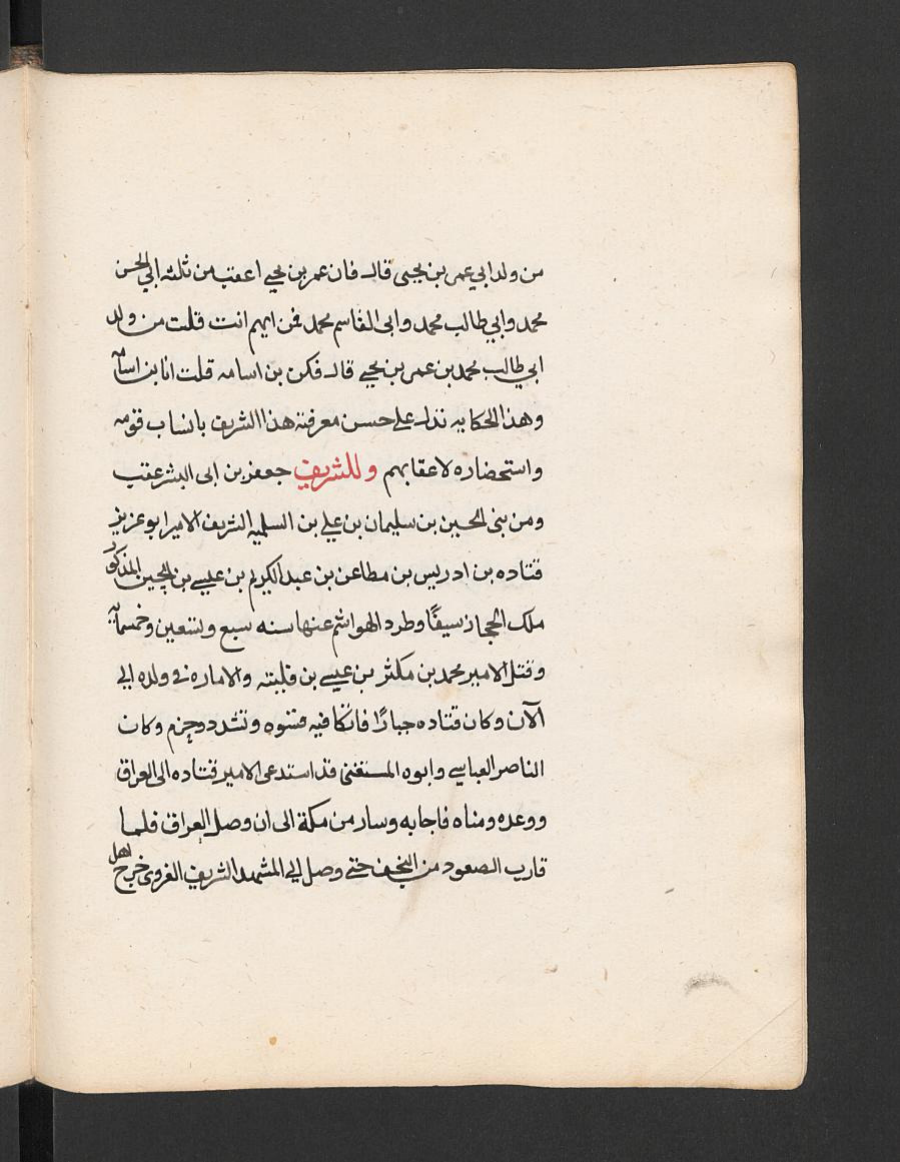 من ولد ابي عمر بن يحيى قال فان عمر بن يحيى اعقب من ثلثه ابي الحسن
محمد وابي طالب محمد وابي القاسم محمد فمن ايهم انت قلت من ولد
ابي طالب محمد بن عمر بن يحيى قال فكن بن اسامه قلت انا بن اسامه
وهذا الحكايه تدل على حسن معرفة هذا الشريف بانساب قومه
واستحضاره لاعقابهم وللشريف جعفر بن ابى البشر عقب
ومن بنى الحسين بن سليمان بن علي بن السلميه الشريف الامير ابو عزيز
قتاده بن ادريس بن مطاعن بن عبد الكريم بن عيسى بن الحسين المذكور
ملك الحجاز سيفًا وطرد الهواشم عنها سنه سبع وتسعين وخمسمايه
وقتل الامير محمد بن مكثر بن عيسى بن فليته والاماره في ولده الى
الآن وكان قتاده جبارًا فاتكا فيه قسوه وتشدد وحزم وكان
الناصر العباسي وابوه المستغنى قد استدعى الامير قتاده الى العراق
ووعده ومناه فاجابه وسار من مكة الى ان وصل العراق فلما
قارب الصعود من النجف حتى وصل الى المشهد الشريف الغروى خرج اهل